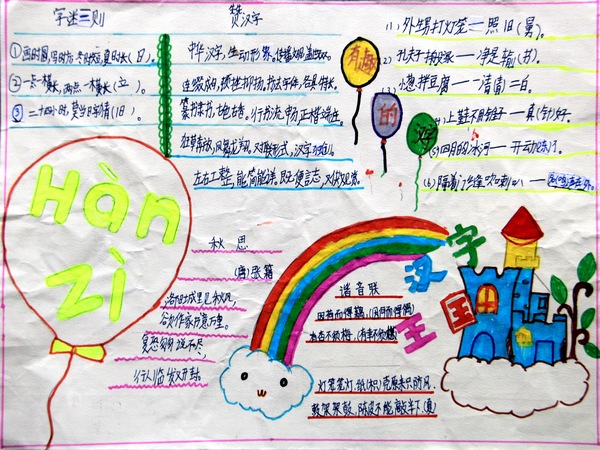 字迷三则
①画时圆,写时方,冬时短,夏时长(日)。
②一点一横长,两点一横长(立)。
③二十四小时,莫当日字猜(旧)。
赞汉字
中华汉字,生动形象。
连缀成句,顿挫抑扬。书法字体,各具特长。
篆书隶书,古色古香。行书流畅,正楷端庄。
狂草奔放,凤翥龙翔。对联形式,汉字
左右工整,能简能详。既便言志,
有趣的汉字
(1)外甥打灯笼——照旧(舅)。
(2)孔夫子搬家——净是输(书)。
(3)小葱拌豆腐——一清(青)二白。
(4)上鞋不用锥子——真(针)好。
(5)四月的冰河——开动
(6)隔着门缝吹喇叭——
Hàn
zì
秋思
(唐)张籍
洛阳城里见秋风,
欲作家书意万重。
复恐匆匆说不尽,
行人临发又开封。
谐音联
因荷而得藕,(因何而得偶)
有杏不须梅。(有幸不须媒)
灯笼笼灯,纸(枳)壳原来只防风
鼓架架鼓,陈皮不能敲半下(夏)
汉字
王国